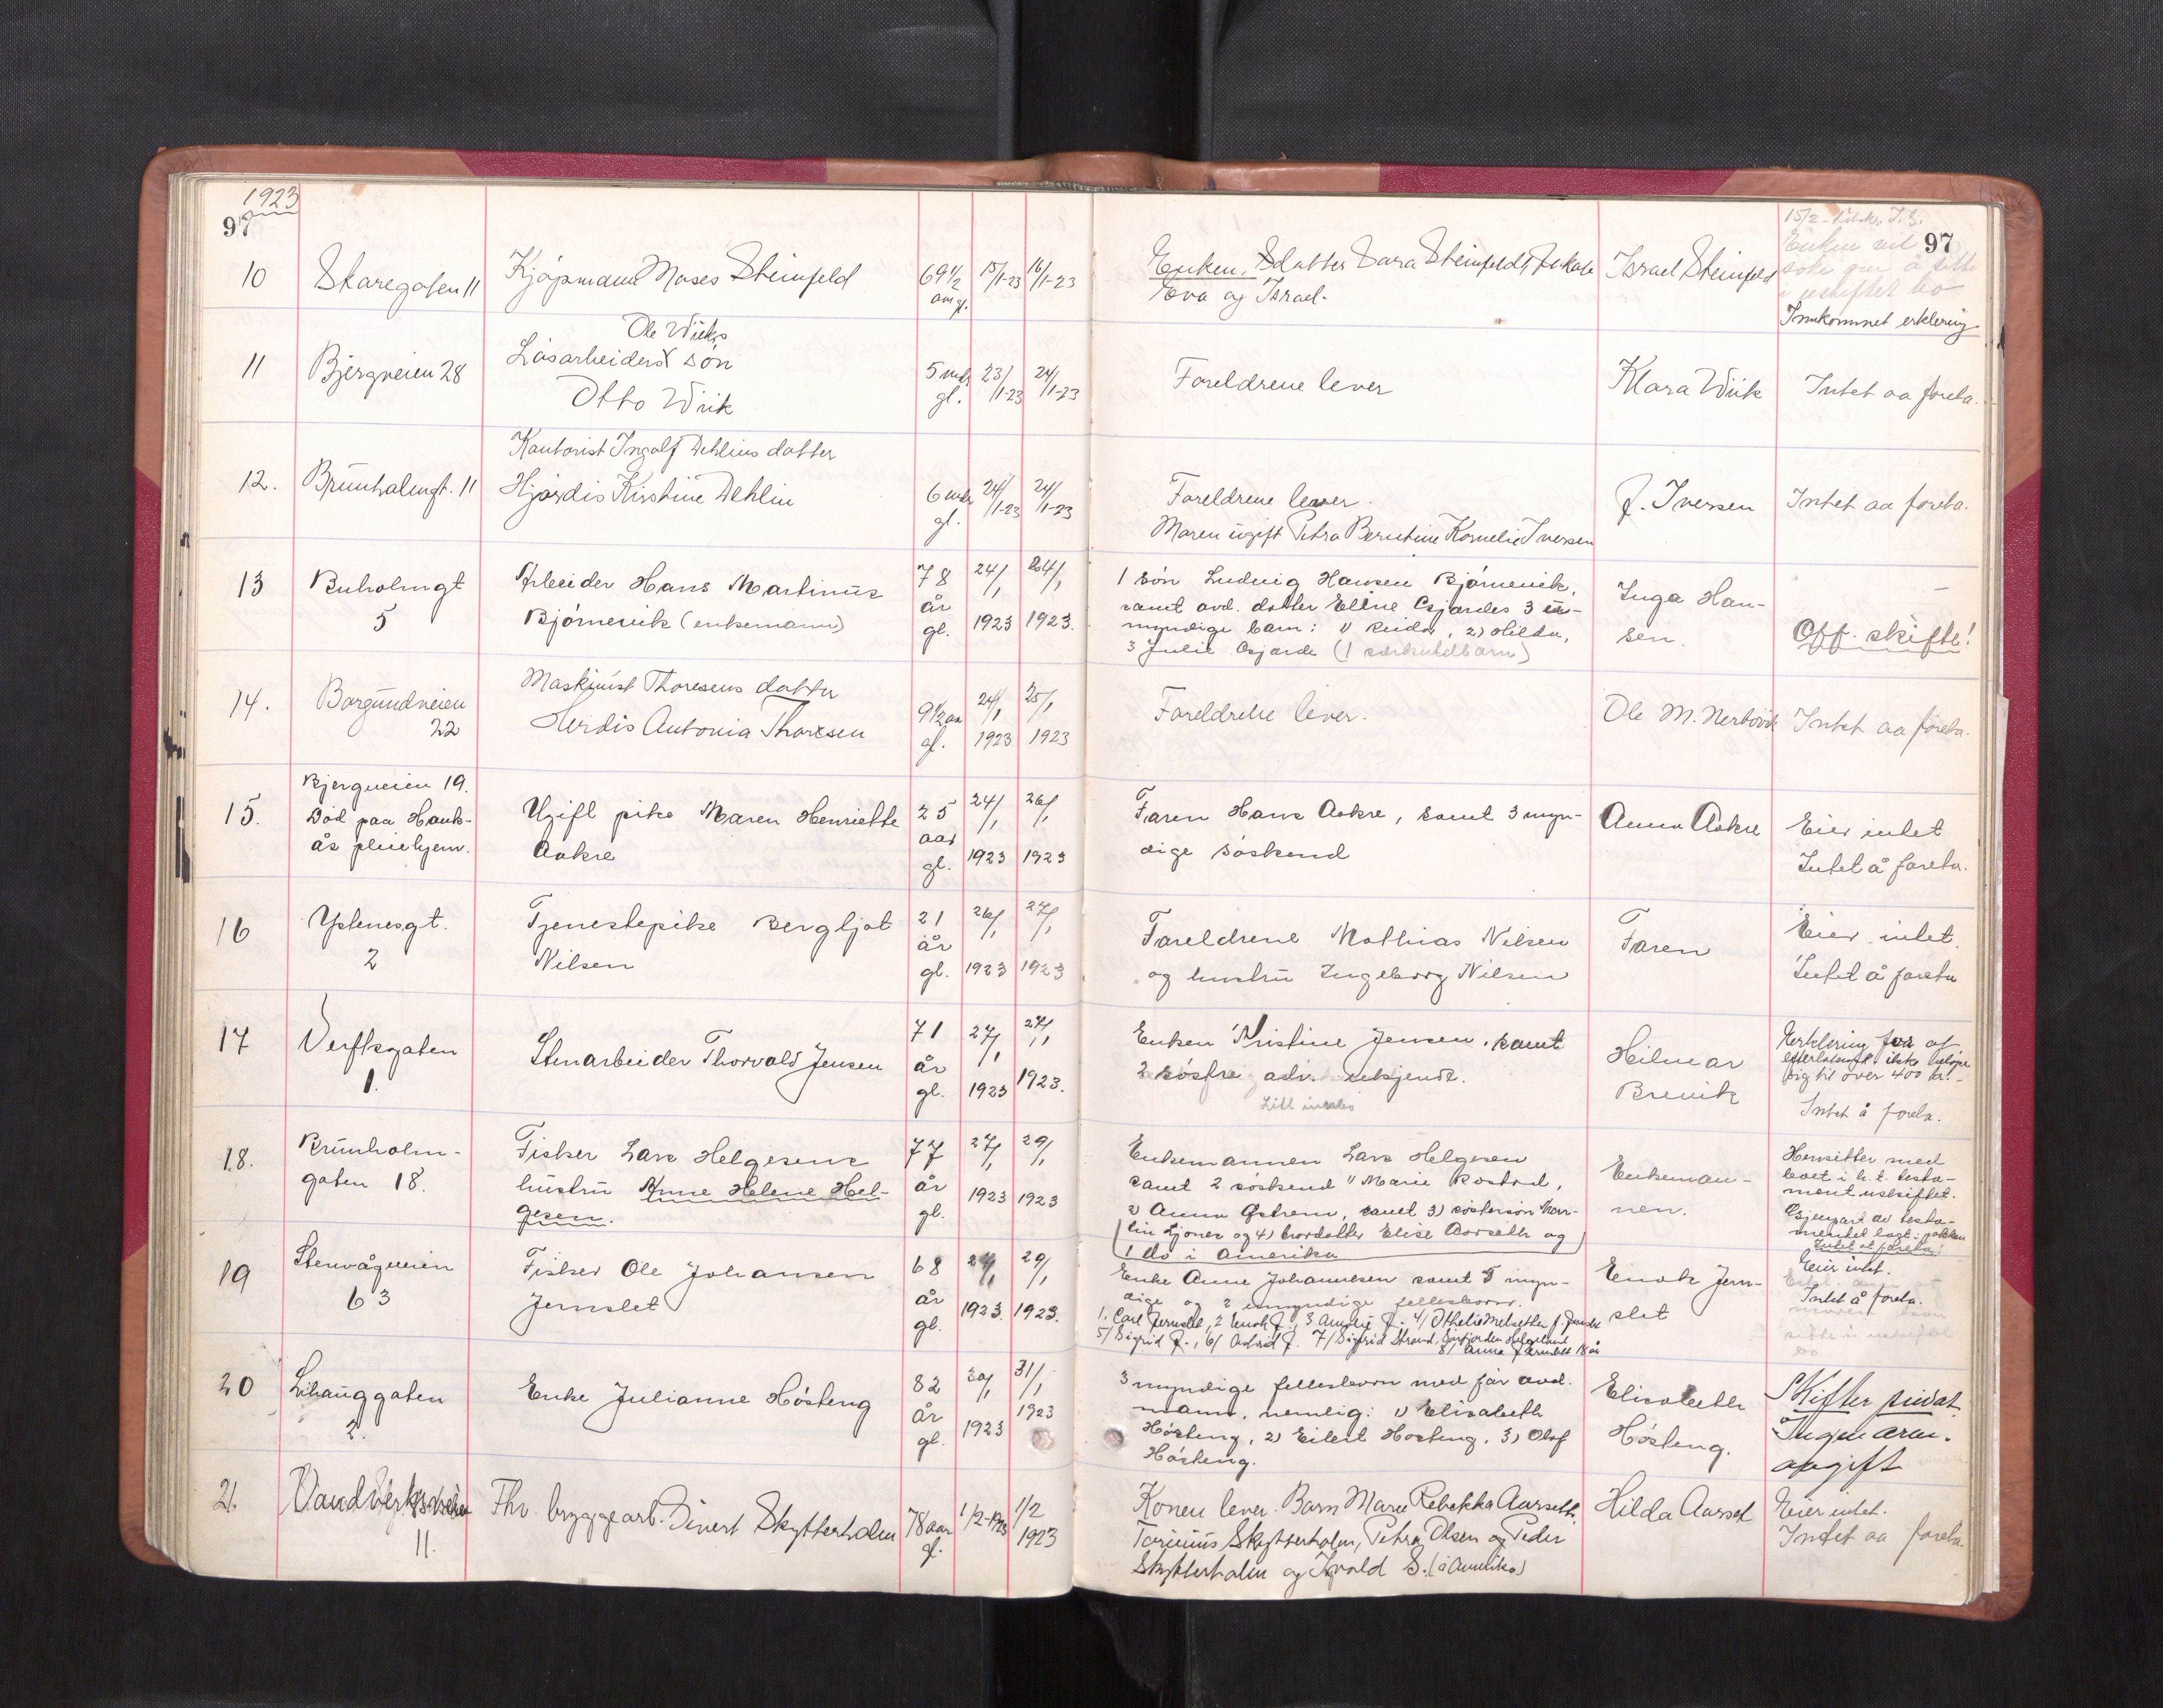 1923
97
97
10
Skaregaten 11
Kjøpmann Moses Steinfeld
69 1/2
aar gl.
15/1-23
16/1-23
Enken, datter Sara Steinfeldt,
Eva og Israel.
Israel Steinfeld
15/2
Enken vil
søke om å sitte
i uskiftet bo
Innkommet erklering
11
Bjergveien 28
Ole Wiiks
Låsarbeiders søn
Otto Wiik
5 mdr
gl.
23/1-23
24/1-23
Foreldrene lever
Klara Wiik
Intet aa foreta.
12.
Brunholmgt. 11
Kontorist Ingolf Dehlins datter
Hjørdis Kirstine Dehlin
6 mdr
gl.
24/1-23
24/1-23
Foreldrene lever.
Moren ugift Petra Berntine Kornelie Iversen
J. Iversen
Intet aa foreta.
13
Buholmgt
5
Arbeider Hans Martinus
Bjørnevik (enkemann)
78
år
gl.
24/1
1923
24/1
1923.
1 søn Ludvig Hansen Bjørnevik,
samt avd. datter Eline Gjerdes 3 u-
myndige barn: 1) Reidar, 2) Hilda,
3 Julie Gjerde (1 særkuldbarn)
Inga Han-
sen.
Off. skifte!
14.
Borgundveien
22
Maskinist Thoresens datter
Herdis Antonia Thoresen
9 1/2 aar
gl.
24/1
1923
25/1
1923
Foreldrene lever.
Ole M. Nerbøvik
Intet aa foreta.
15.
Bjergveien 19.
Død paa Hauk-
ås pleiehjem.
Ugift pike Maren Henriette
Aakre
25
aar
gl.
24/1
1923
26/1
1923
Faren Hans Aakre, samt 3 myn-
dige søskend
Anna Aakre
Eier intet
Intet å foreta.
16
Ystenesgt.
2
Tjenestepike Bergljot
Nilsen
21
år
gl.
26/1
1923
27/1
1923
Foreldrene Mathias Nilsen
og hustru Ingeborg Nilsen
Faren
Eier intet.
Intet å foreta
17
Verftsgaten
1.
Stenarbeider Thorvald Jensen
71
år
gl.
27/1
1923
27/1
1923.
Enken Kristine Jensen, samt
2 søstre adr. ukjendt.
Hilmar
Brevik
Erklering for at
efterlatensk. ikke beløper
sig til over 400 kr.
Intet å foreta.
18.
Brunholm-
gaten 18.
Fisker Lars Helgesens
hustru Anne Helene Hel-
gesen.
77
år
gl.
27/1
1923
29/1
1923
Enkemannen Lars Helgesen
samt 2 søskend 1) Marie Rostad,
2) Anna Østrem, samt 3) søstersøn Mar-
tin Gjones og 4) brordatter Elise Aarseth og
1 do i Amerika
Enkeman-
nen.
Hensitter med
boet i h.t. testa-
ment uskiftet.
Gjenpart av testa-
mentet lagt i pakken
Intet at foreta!
19
Stenvågveien
63
Fisker Ole Johansen
Jernslet
68
år
gl.
27/1
1923.
29/1
1923.
Enke Anne Johannesen samt 5 myn-
dige og 2 umyndige fellesbarn.
1. Carl Jernslet, 2 Enok J., 3 Amalie J. 4/ Othelie Melsether f. Jernslet
5/ Sigrid J., 6/ Astrid J. 7/ Sigfrid Strand, Helgeland
8/ Anna Jernslett 18 år
Enok Jern-
slet
Eier intet.
Intet å foreta.
20
Lihauggaten
2.
Enke Julianne Høsteng
82
år
gl.
30/1
1923
31/1
1923
3 myndige fellesbarn med før avd.
mann, nemlig: 1) Elisabeth
Høsteng, 2) Eilert Høsteng, 3) Olaf
Høsteng.
Elisabeth
Høsteng.
Skifter privat.
Ingen arve-
avgift
21.
Vandverksveien
11.
Fhv. bryggearb. Sivert Skytterholm
78 aar
gl.
1/2-1923
1/2
1923
Konen lever. Barn Marie Rebekka Aarseth,
Torinius Skytterholm, Petra Olsen og Peder
Skytterholm og Ivald S. (i Amerika)
Hilda Aarset
Eier intet.
Intet aa foreta.